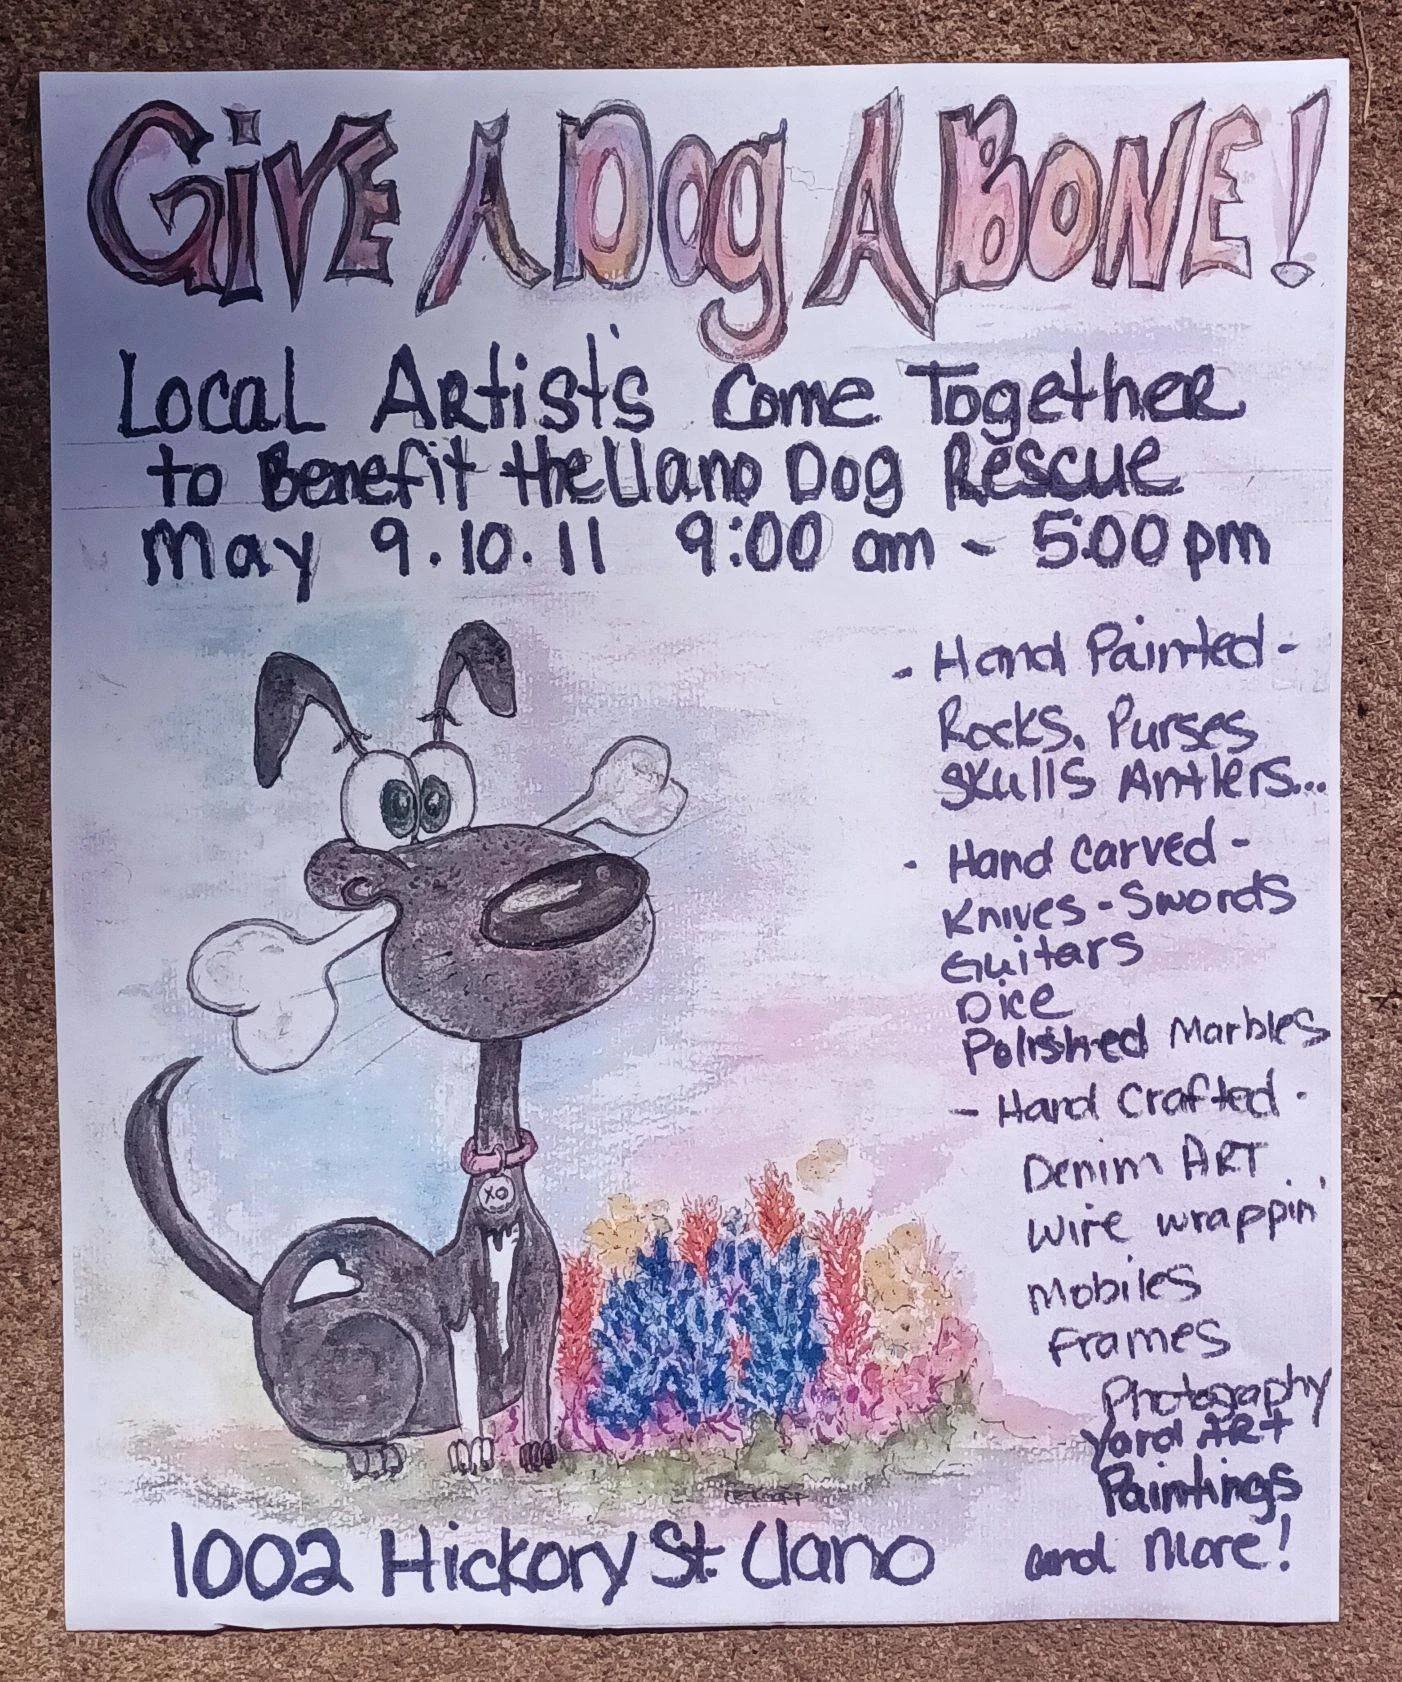 Give A Dog A Bone!
Local Artist's Come Together
to Benefit the Llano Dog Rescue
May 9.10.11 9:00 am - 5:00 pm
- Hand Painted -
Rocks, Purses
Skulls Antlers...
- Hand Carved -
Knives - Swords
Guitars
Dice
Polished Marbles
- Hand Crafted -
Denim ART
Wire wrappin'
Mobiles
Frames
Photography
Yard ART
Paintings
and More!
XO
1002 Hickory St. Llano